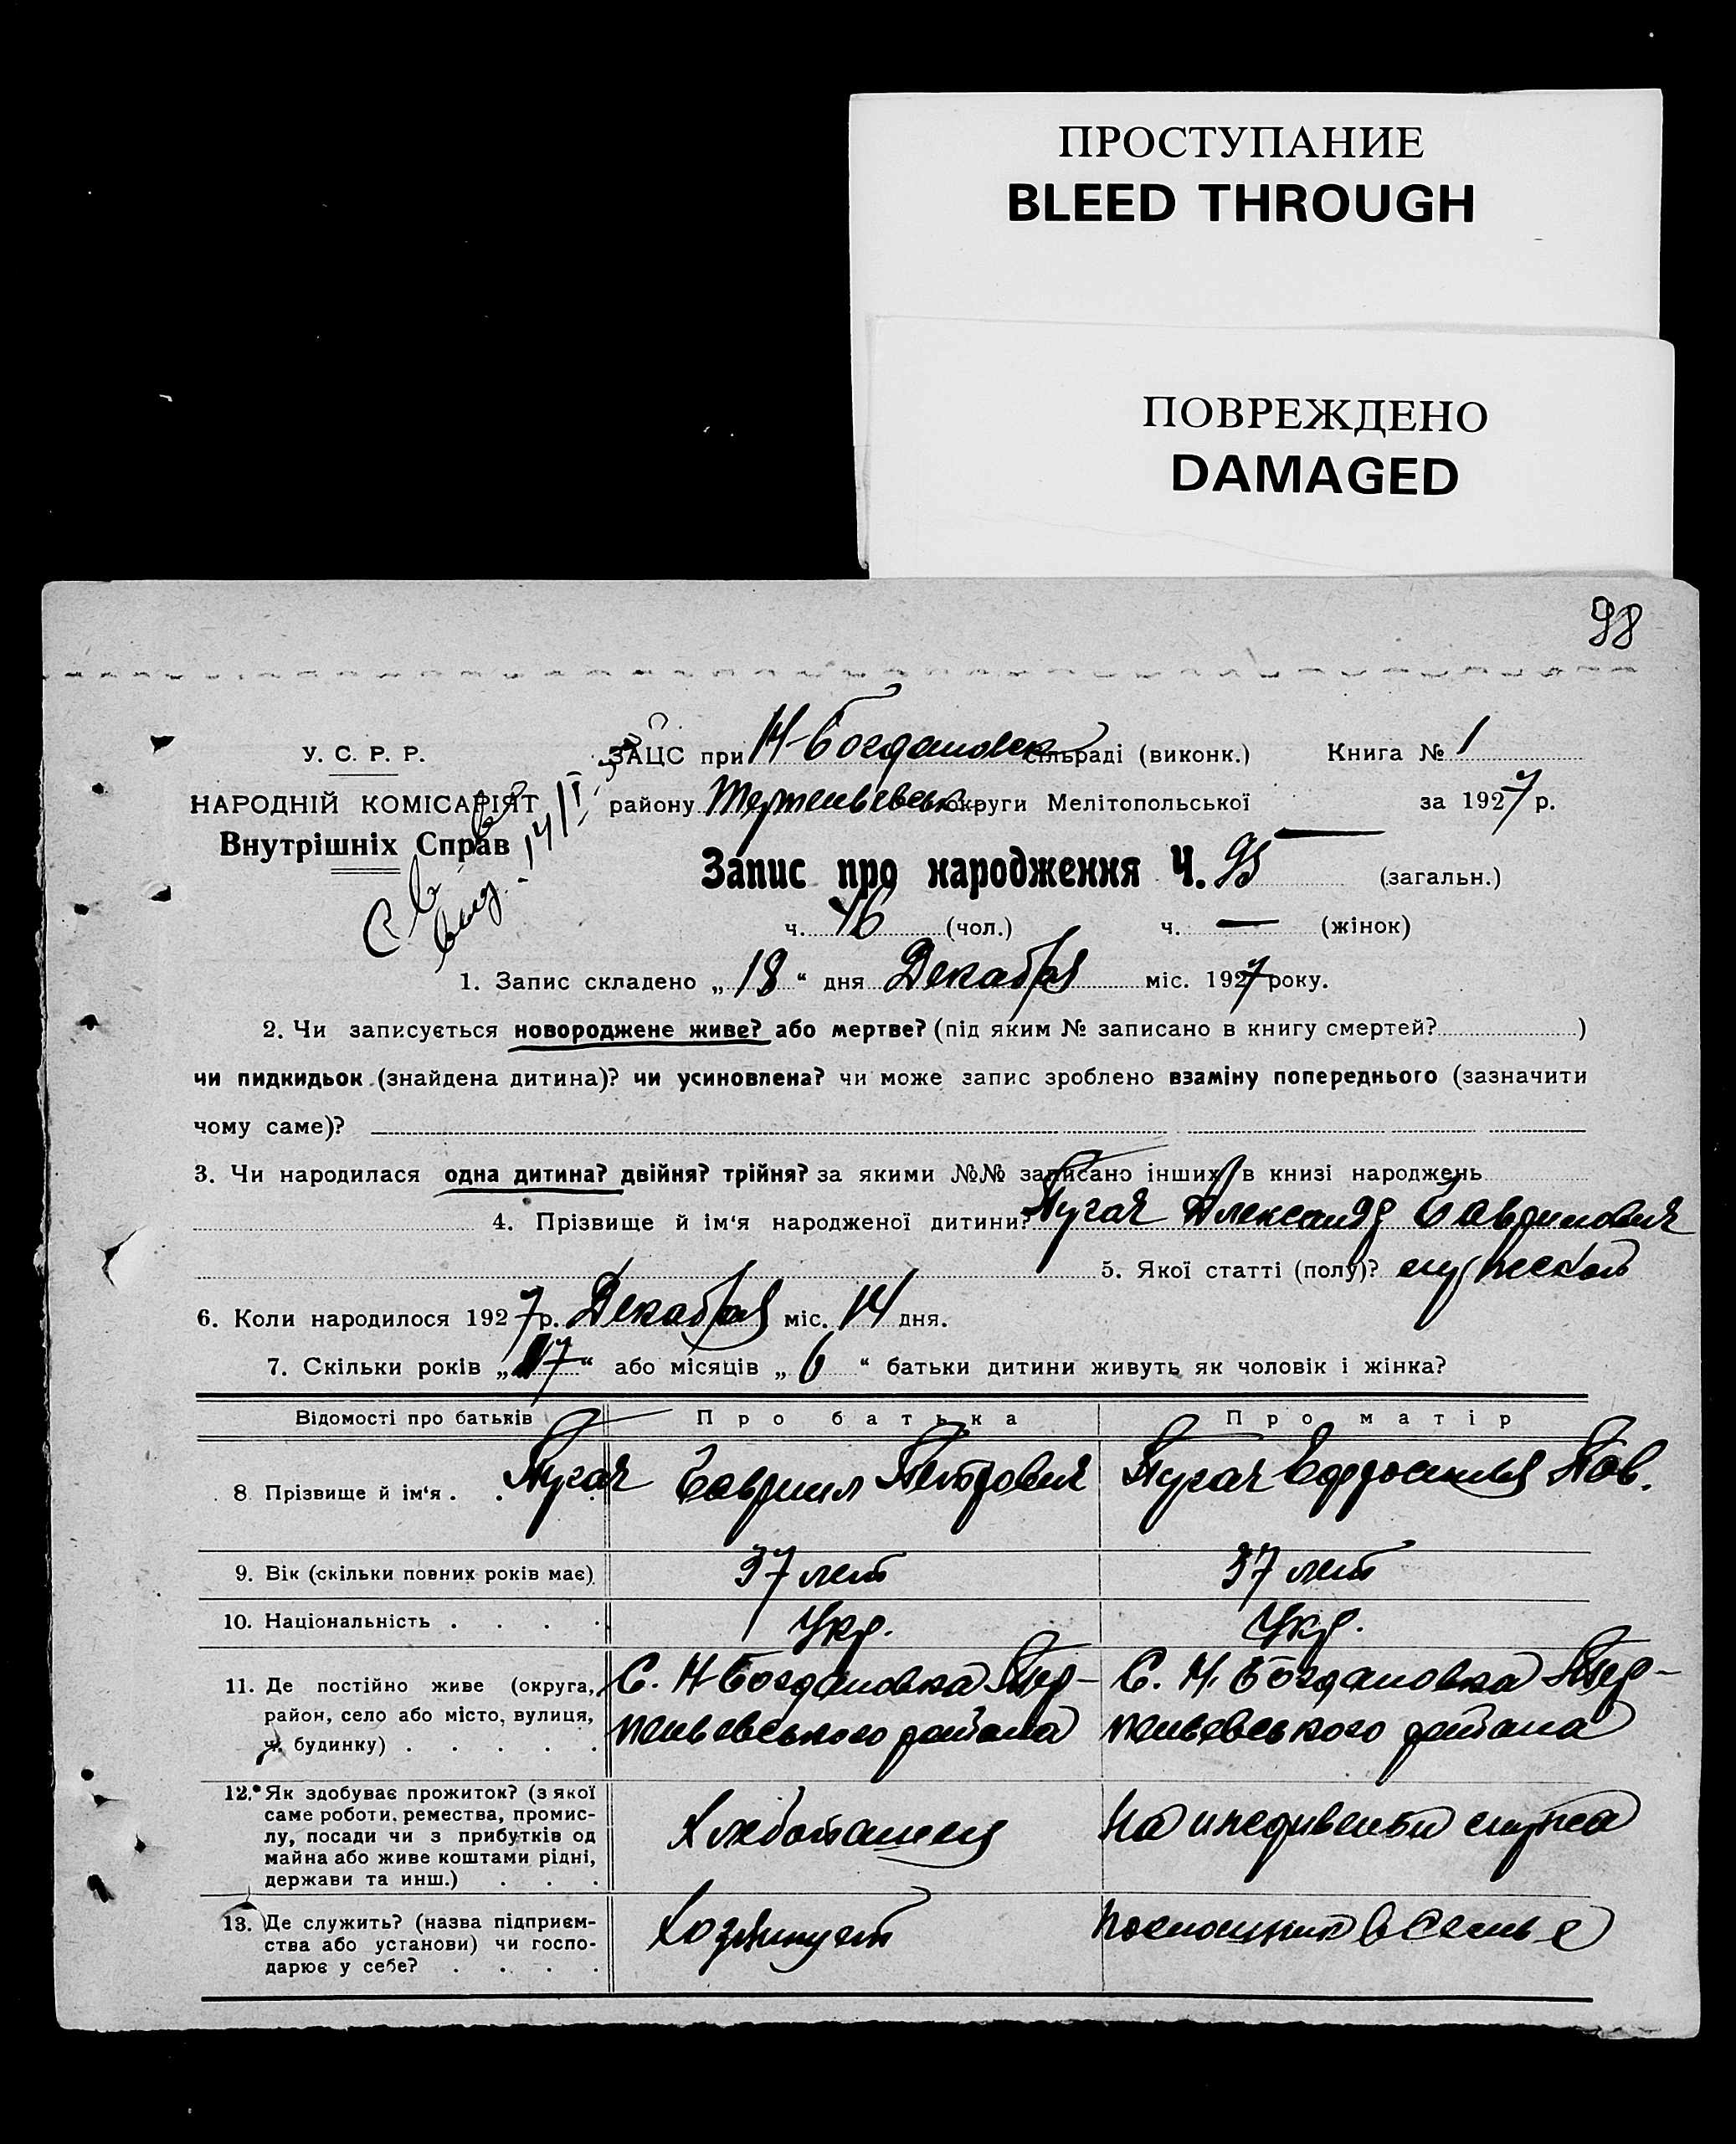 ПРОСТУПАНИЕ
BLEED THROUGH
ПОВРЕЖДЕНО
DAMAGED
98
У. С. Р. Р.
НАРОДНІЙ КОМІСАРІЯТ
Внутрішніх Справ
ЗАЦС при Н-Богдановск сільраді (виконк.) Книга № 1
району округи Мелітопольської за 1927 р.
Запис про народження Ч. 95 (загальн.)
ч. 46 (чол.) ч. — (жінок)
1. Запис складено „18“ дня Декабря міс. 1927 року.
2. Чи записується новороджене живе? або мертве? (під яким № записано в книгу смертей? )
чи пидкидьок (знайдена дитина)? чи усиновлена? чи може запис зроблено взаміну попереднього (зазначити
чому саме)?
3. Чи народилася одна дитина? двійня? трійня? за якими №№ записано інших в книзі народжень
4. Прізвище й ім‘я народженої дитини? Пугач Александр Гаврилович
5. Якої статті (полу)? мужеской
6. Коли народилося 1927 р. Декабря міс. 14 дня.
7. Скільки років „17“ або місяців „6“ батьки дитини живуть як чоловік і жінка?
Відомості про батьків Про батька Про матір
8 Прізвище й ім‘я . . Пугач Гавриил Петрович Пугач Ефросинья Пав.
9. Вік (скільки повних років має) 37 лет 37 лет
10. Національність . . . . Укр. Укр.
11. Де постійно живе (округа, С. Н-Богдановка Тер- С. Н. Богдановка Тер-
район, село або місто, вулиця, пеньевського района пеньевського района
ч. будинку) . . . . .
12. Як здобуває прожиток? (з якої
саме роботи, ремества, промис-
лу, посади чи з прибутків од Хлебопашец На иждивеньи мужа
майна або живе коштами рідні,
держави та инш.) . . .
13. Де служить? (назва підприєм-
ства або установи) чи госпо- Хозяинует в семье
дарює у себе? . . . .